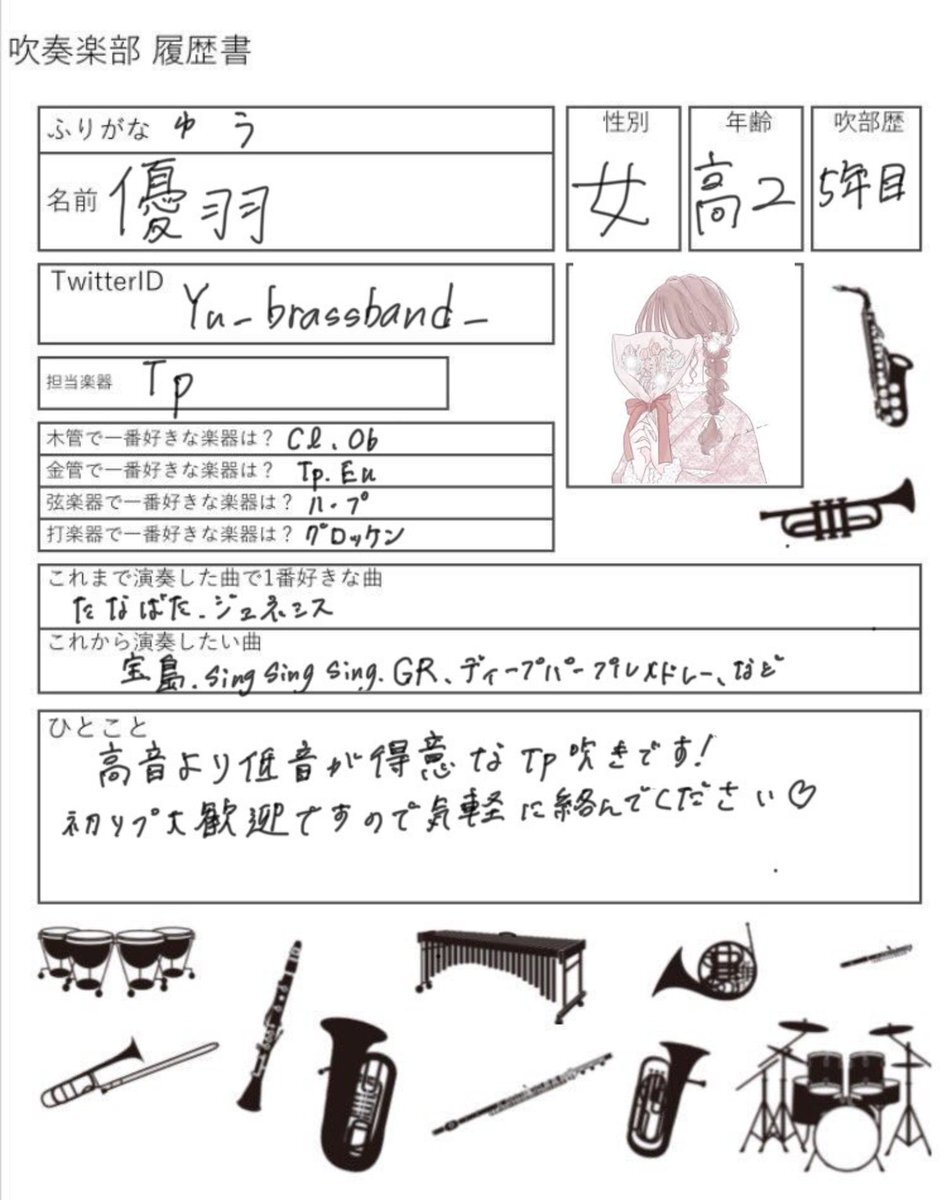 吹奏楽部 履歴書
ふりがな ゆう
名前 優羽
性別
女
年齢
高2
吹部歴
5年目
TwitterID Yu_brassband_
担当楽器 Tp
木管で一番好きな楽器は？ Cl、Ob
金管で一番好きな楽器は？ Tp.Eu
弦楽器で一番好きな楽器は？ ハープ
打楽器で一番好きな楽器は？ グロッケン
これまで演奏した曲で1番好きな曲
たなばた、ジェネシス
これから演奏したい曲
宝島、sing sing sing、GR、ディープパープルメドレー、など
ひとこと
高音より低音が得意なTp吹きです！
初リプ大歓迎ですので気軽に絡んでください♡